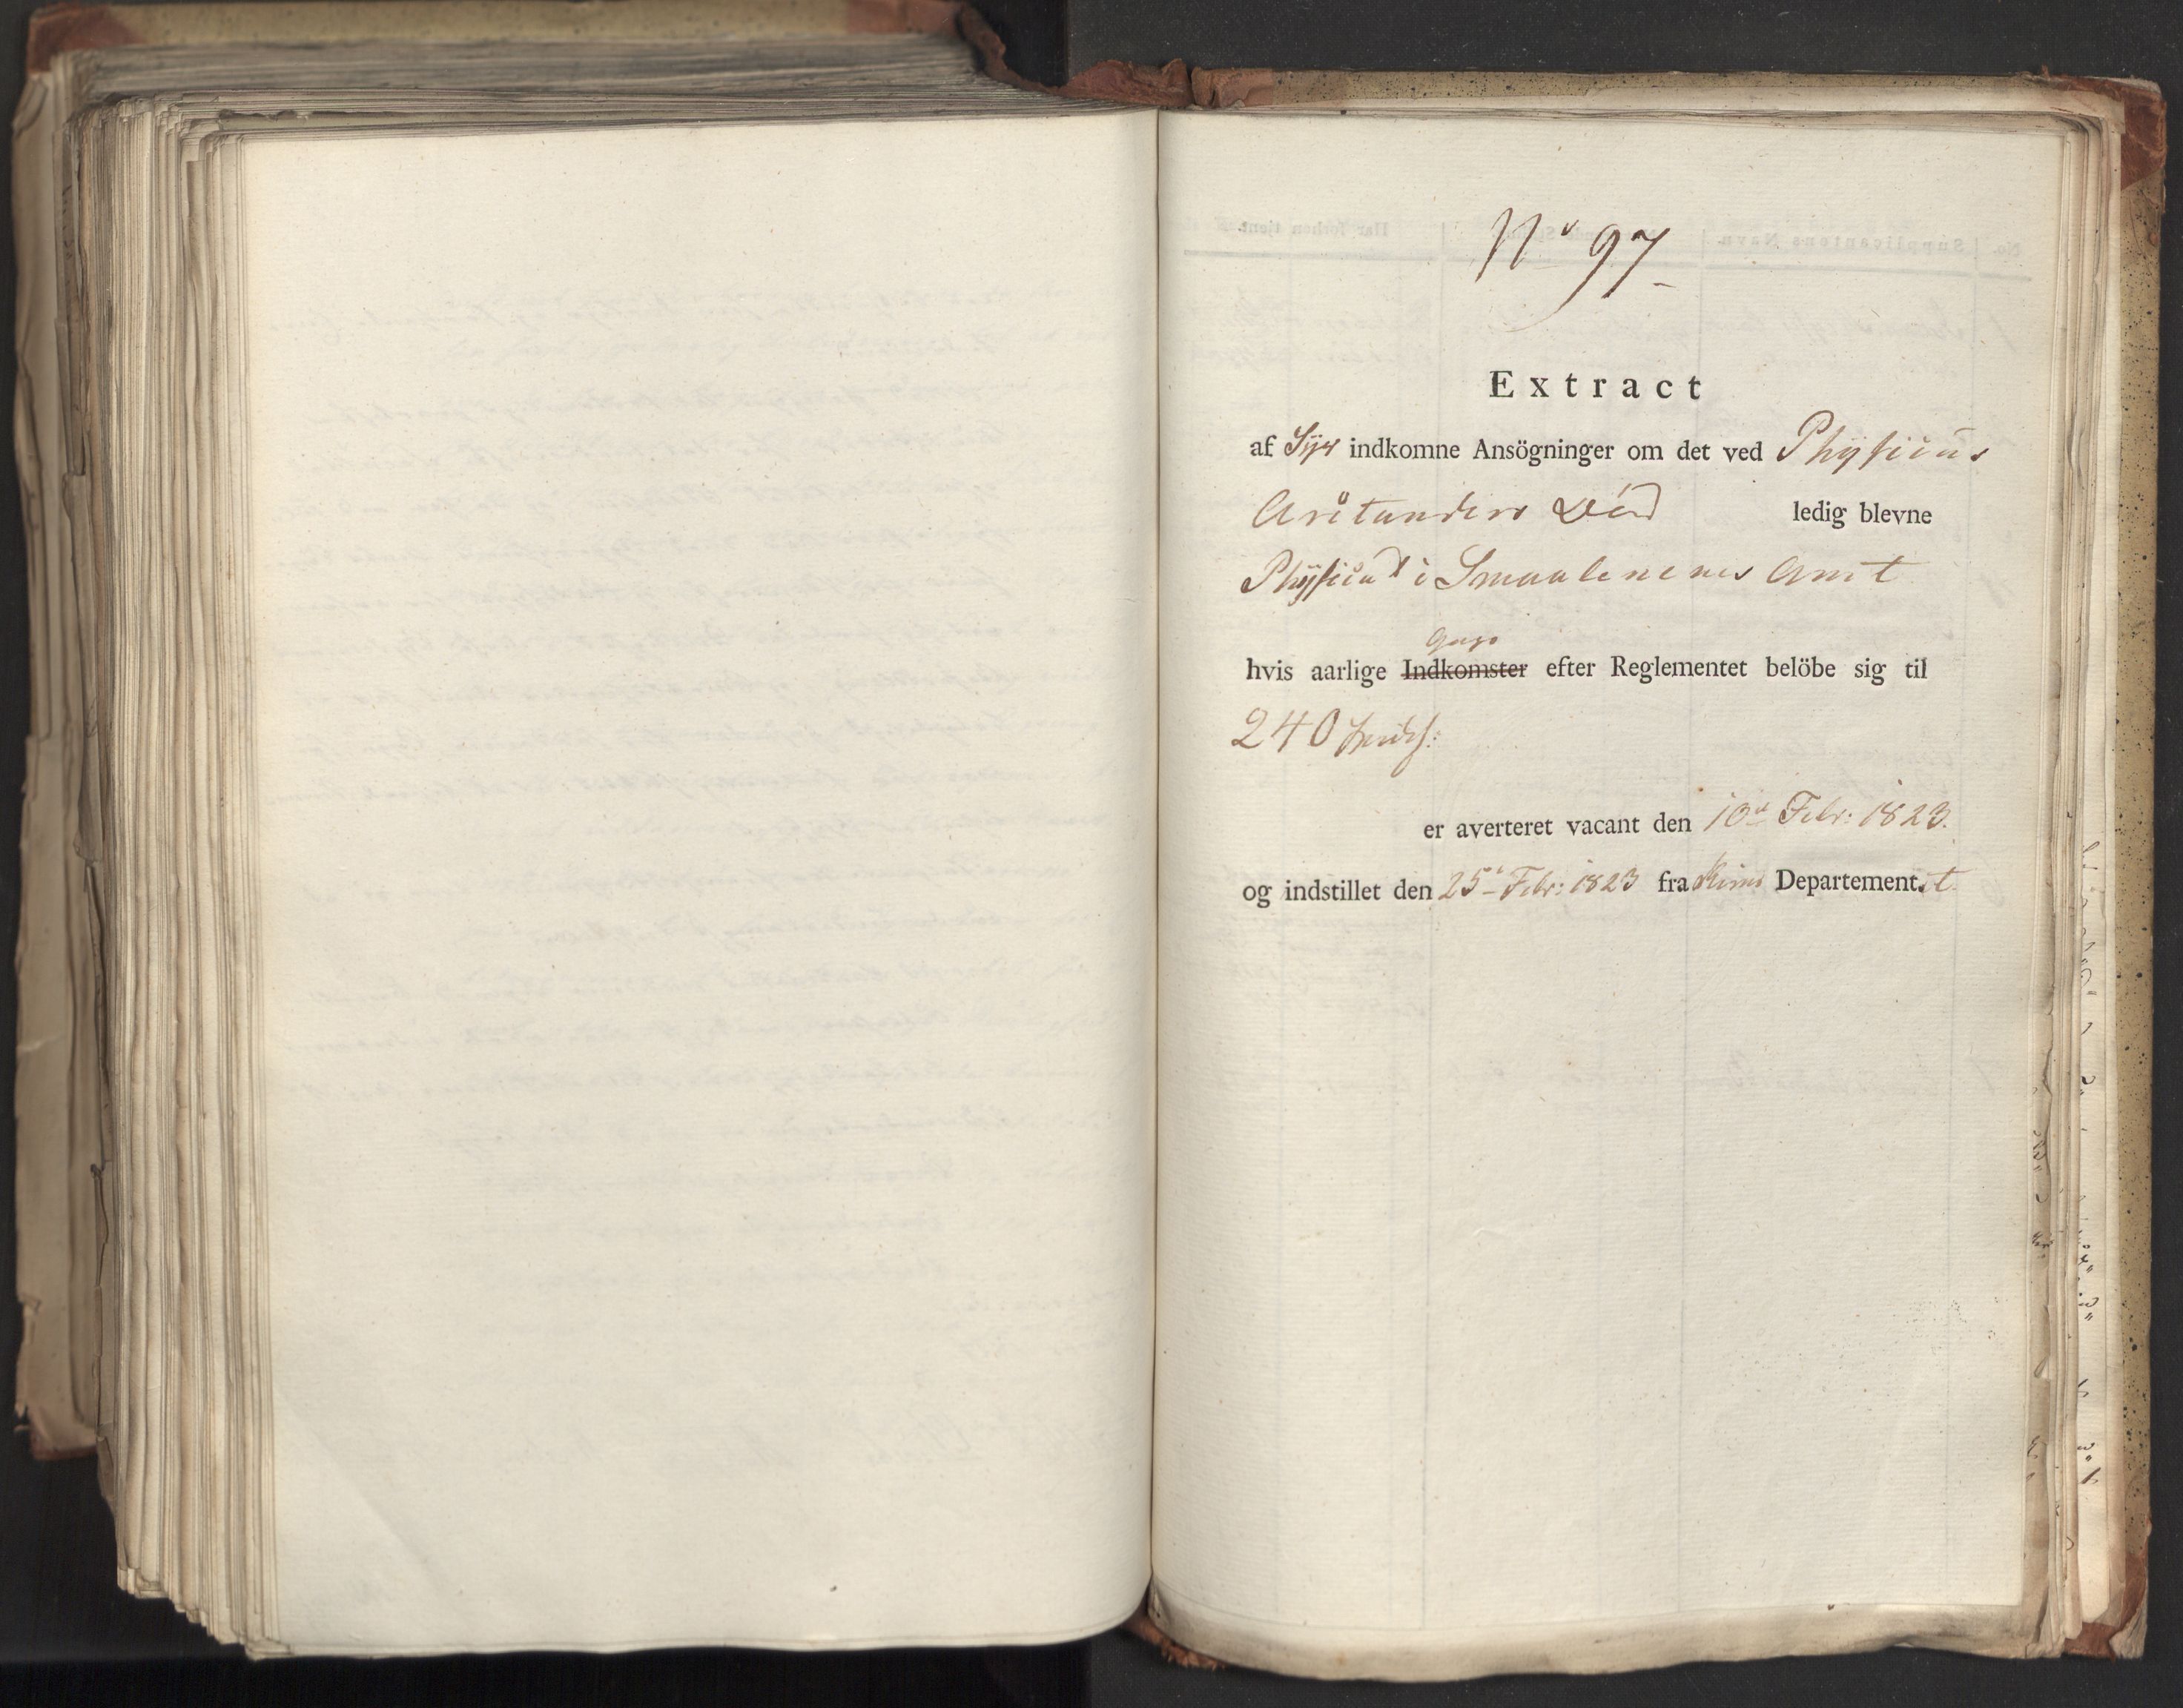 No 97
Extract
af Syv indkomne Ansögninger om det ved Physicus
Død ledig blevne
Physicat i Smaalenenes Amt
Gage
hvis aarlige Indkomster efter Reglementet belöbe sig til
240
er averteret vacant den 10de Febr: 1823.
og indstillet den 25de Febr: 1823 fra Departement.et